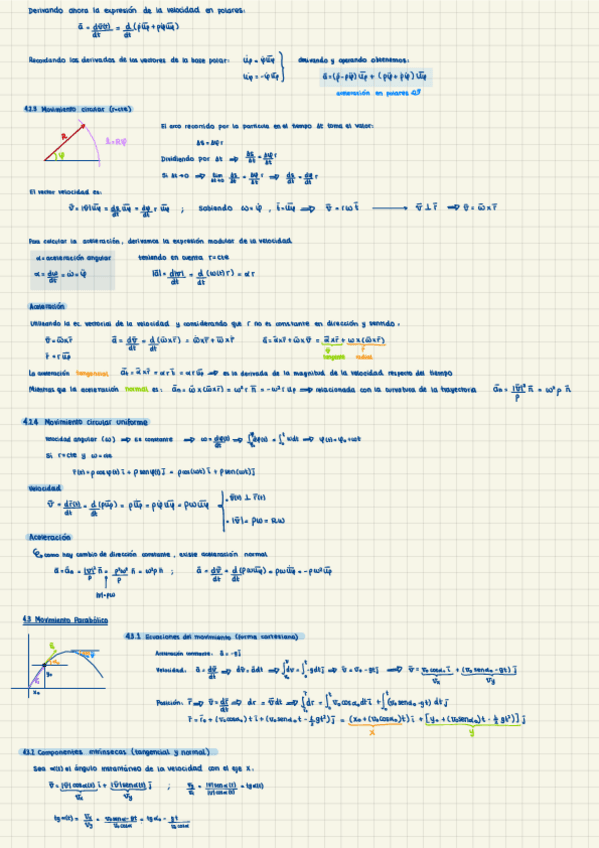 Derivando ahora la expresión de la velocidad en polares:
ā = dv̄(t)/dt = d/dt (ρ̇ūρ + ρφ̇ūφ)
Recordando las derivadas de los vectores de la base polar: u̇ρ = φ̇ūφ } derivando y operando obtenemos:
u̇φ = -φ̇ūρ ā = (ρ̈ - ρφ̇²)ūρ + (ρφ̈ + 2ρ̇φ̇)ūφ
aceleración en polares
4.2.3 Movimiento circular (r=cte)
El arco recorrido por la partícula en el tiempo Δt toma el valor:
R φ
Δs = Δφ r
Dividiendo por Δt ⇒ Δs/Δt = Δφ/Δt r
Si Δt→0 ⇒ lim Δt→0 Δs/Δt = Δφ/Δt r ⇒ ds/dt = dφ/dt r
El vector velocidad es:
v̄ = |v̄|ūφ = ds/dt ūφ = dφ/dt r ūφ ; Sabiendo ω = φ̇, t̄ = ūφ ⇒ v̄ = rω t̄ ⟶ v̄ ⊥ r̄ ⇒ v̄ = ω̄ x r̄
Para calcular la aceleración, derivamos la expresión modular de la velocidad
α = aceleración angular teniendo en cuenta r=cte
α = dω/dt = ω̇ = φ̈ |ā| = d|v̄|/dt = d/dt (ω(t) r) = α r
Aceleración
Utilizando la ec. vectorial de la velocidad y considerando que r no es constante en dirección y sentido:
v̄ = ω̄ x r̄ ā = dv̄/dt = d/dt (ω̄ x r̄) = ω̄̇ x r̄ + ω̄ x r̄̇ ā = ᾱ x r̄ + ω̄ x v̄ = ᾱ x r̄ + ω x (ω̄ x r̄)
r̄ = r ūρ tangente radial
La aceleración tangencial āt = ᾱ x r̄ = α r t̄ = α r ūφ ⇒ es la derivada de la magnitud de la velocidad respecto del tiempo
Mientras que la aceleración normal es: ān = ω̄ x (ω̄ x r̄) = ω² r n̄ = -ω² r ūρ ⇒ relacionada con la curvatura de la trayectoria ān = |v̄|²/ρ n̄ = ω² ρ n̄
4.2.4 Movimiento circular uniforme
Velocidad angular (ω) ⇒ es constante ⇒ ω = dφ(t)/dt ⇒ ∫dφ(t) = ∫ωdt ⇒ φ(t) = φ₀ + ωt
Si r=cte y ω=cte
r̄(t) = ρ cosφ(t) ī + ρ senφ(t) j̄ = ρ cos(ωt) ī + ρ sen(ωt) j̄
Velocidad
v̄ = dr̄(t)/dt = d/dt (ρūρ) = ρu̇ρ = ρφ̇ūφ = ρωūφ
• v̄(t) ⊥ r̄(t)
• |v̄| = ρω = R.ω
Aceleración
como hay cambio de dirección constante, existe aceleración normal
ā = ān = |v̄|²/ρ n̄ = ρ²ω²/ρ n̄ = ω²ρ n̄ ; ā = dv̄/dt = d/dt (ρωūφ) = ρωu̇φ = -ρω²ūρ
|v̄| = ρω
4.3 Movimiento Parabólico
4.3.1 Ecuaciones del movimiento (forma cartesiana)
y₀
x₀
Aceleración constante: ā = -g j̄
Velocidad: ā = dv̄/dt ⇒ dv̄ = ādt ⇒ ∫dv̄ = ∫-gdt j̄ ⇒ v̄ = v̄₀ - gt j̄ ⇒ v̄ = v₀cosα₀ ī + (v₀senα₀ - gt) j̄
vx vy
Posición: r̄ ⇒ v̄ = dr̄/dt ⇒ dr̄ = v̄dt ⇒ ∫dr̄ = ∫v₀cosα₀dt ī + ∫(v₀senα₀ - gt) dt j̄
r̄ = r̄₀ + (v₀cosα₀)t ī + (v₀senα₀t - ½gt²) j̄ = (x₀ + (v₀cosα₀)t) ī + [y₀ + (v₀senα₀)t - ½gt²] j̄
x y
4.3.2 Componentes intrínsecas (tangencial y normal)
Sea α(t) el ángulo instantáneo de la velocidad con el eje X.
v̄ = |v̄|cosα(t) ī + |v̄|senα(t) j̄ ; vy/vx = |v̄|senα(t)/|v̄|cosα(t) = tgα(t)
vx vy